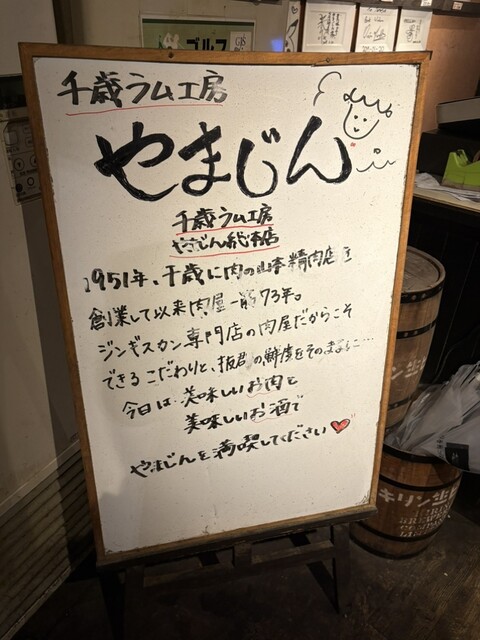 ゴルフ
千歳ラム工房
やまじん
千歳ラム工房
やまじん総本店
1951年、千歳に肉の山本精肉店を
創業して以来肉屋一筋73年。
ジンギスカン専門店の肉屋だからこそ
できるこだわりと、抜群の鮮度をそのままに…
今日は美味しいお肉と
美味しいお酒で
やまじんを満喫してください
キリン
キリン